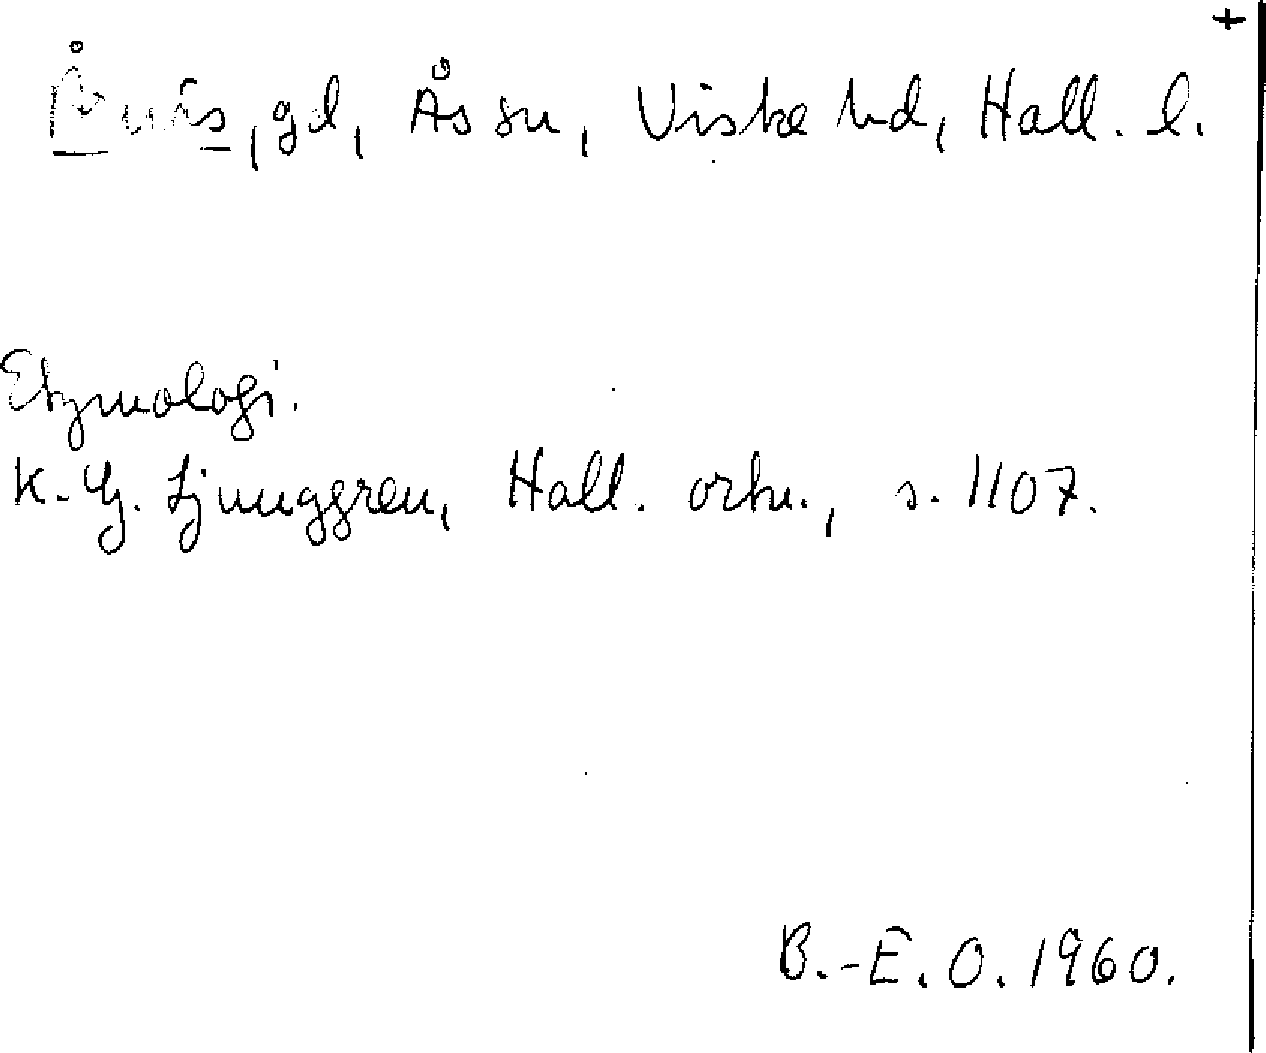 +
Ånäs, gd, Ås sn, Viske hd, Hall. l.
Etymologi.
K. G. Ljunggren, Hall. ortn., s. 1107.
B.-E. O. 1960.